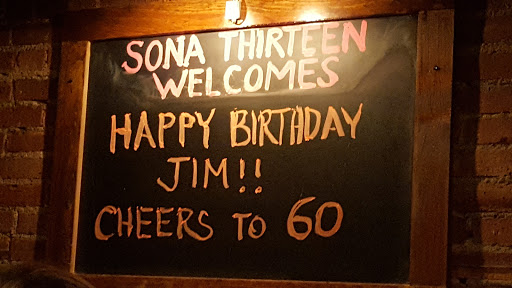 SONA THIRTEEN
WELCOMES
HAPPY BIRTHDAY
JIM!!
CHEERS TO 60